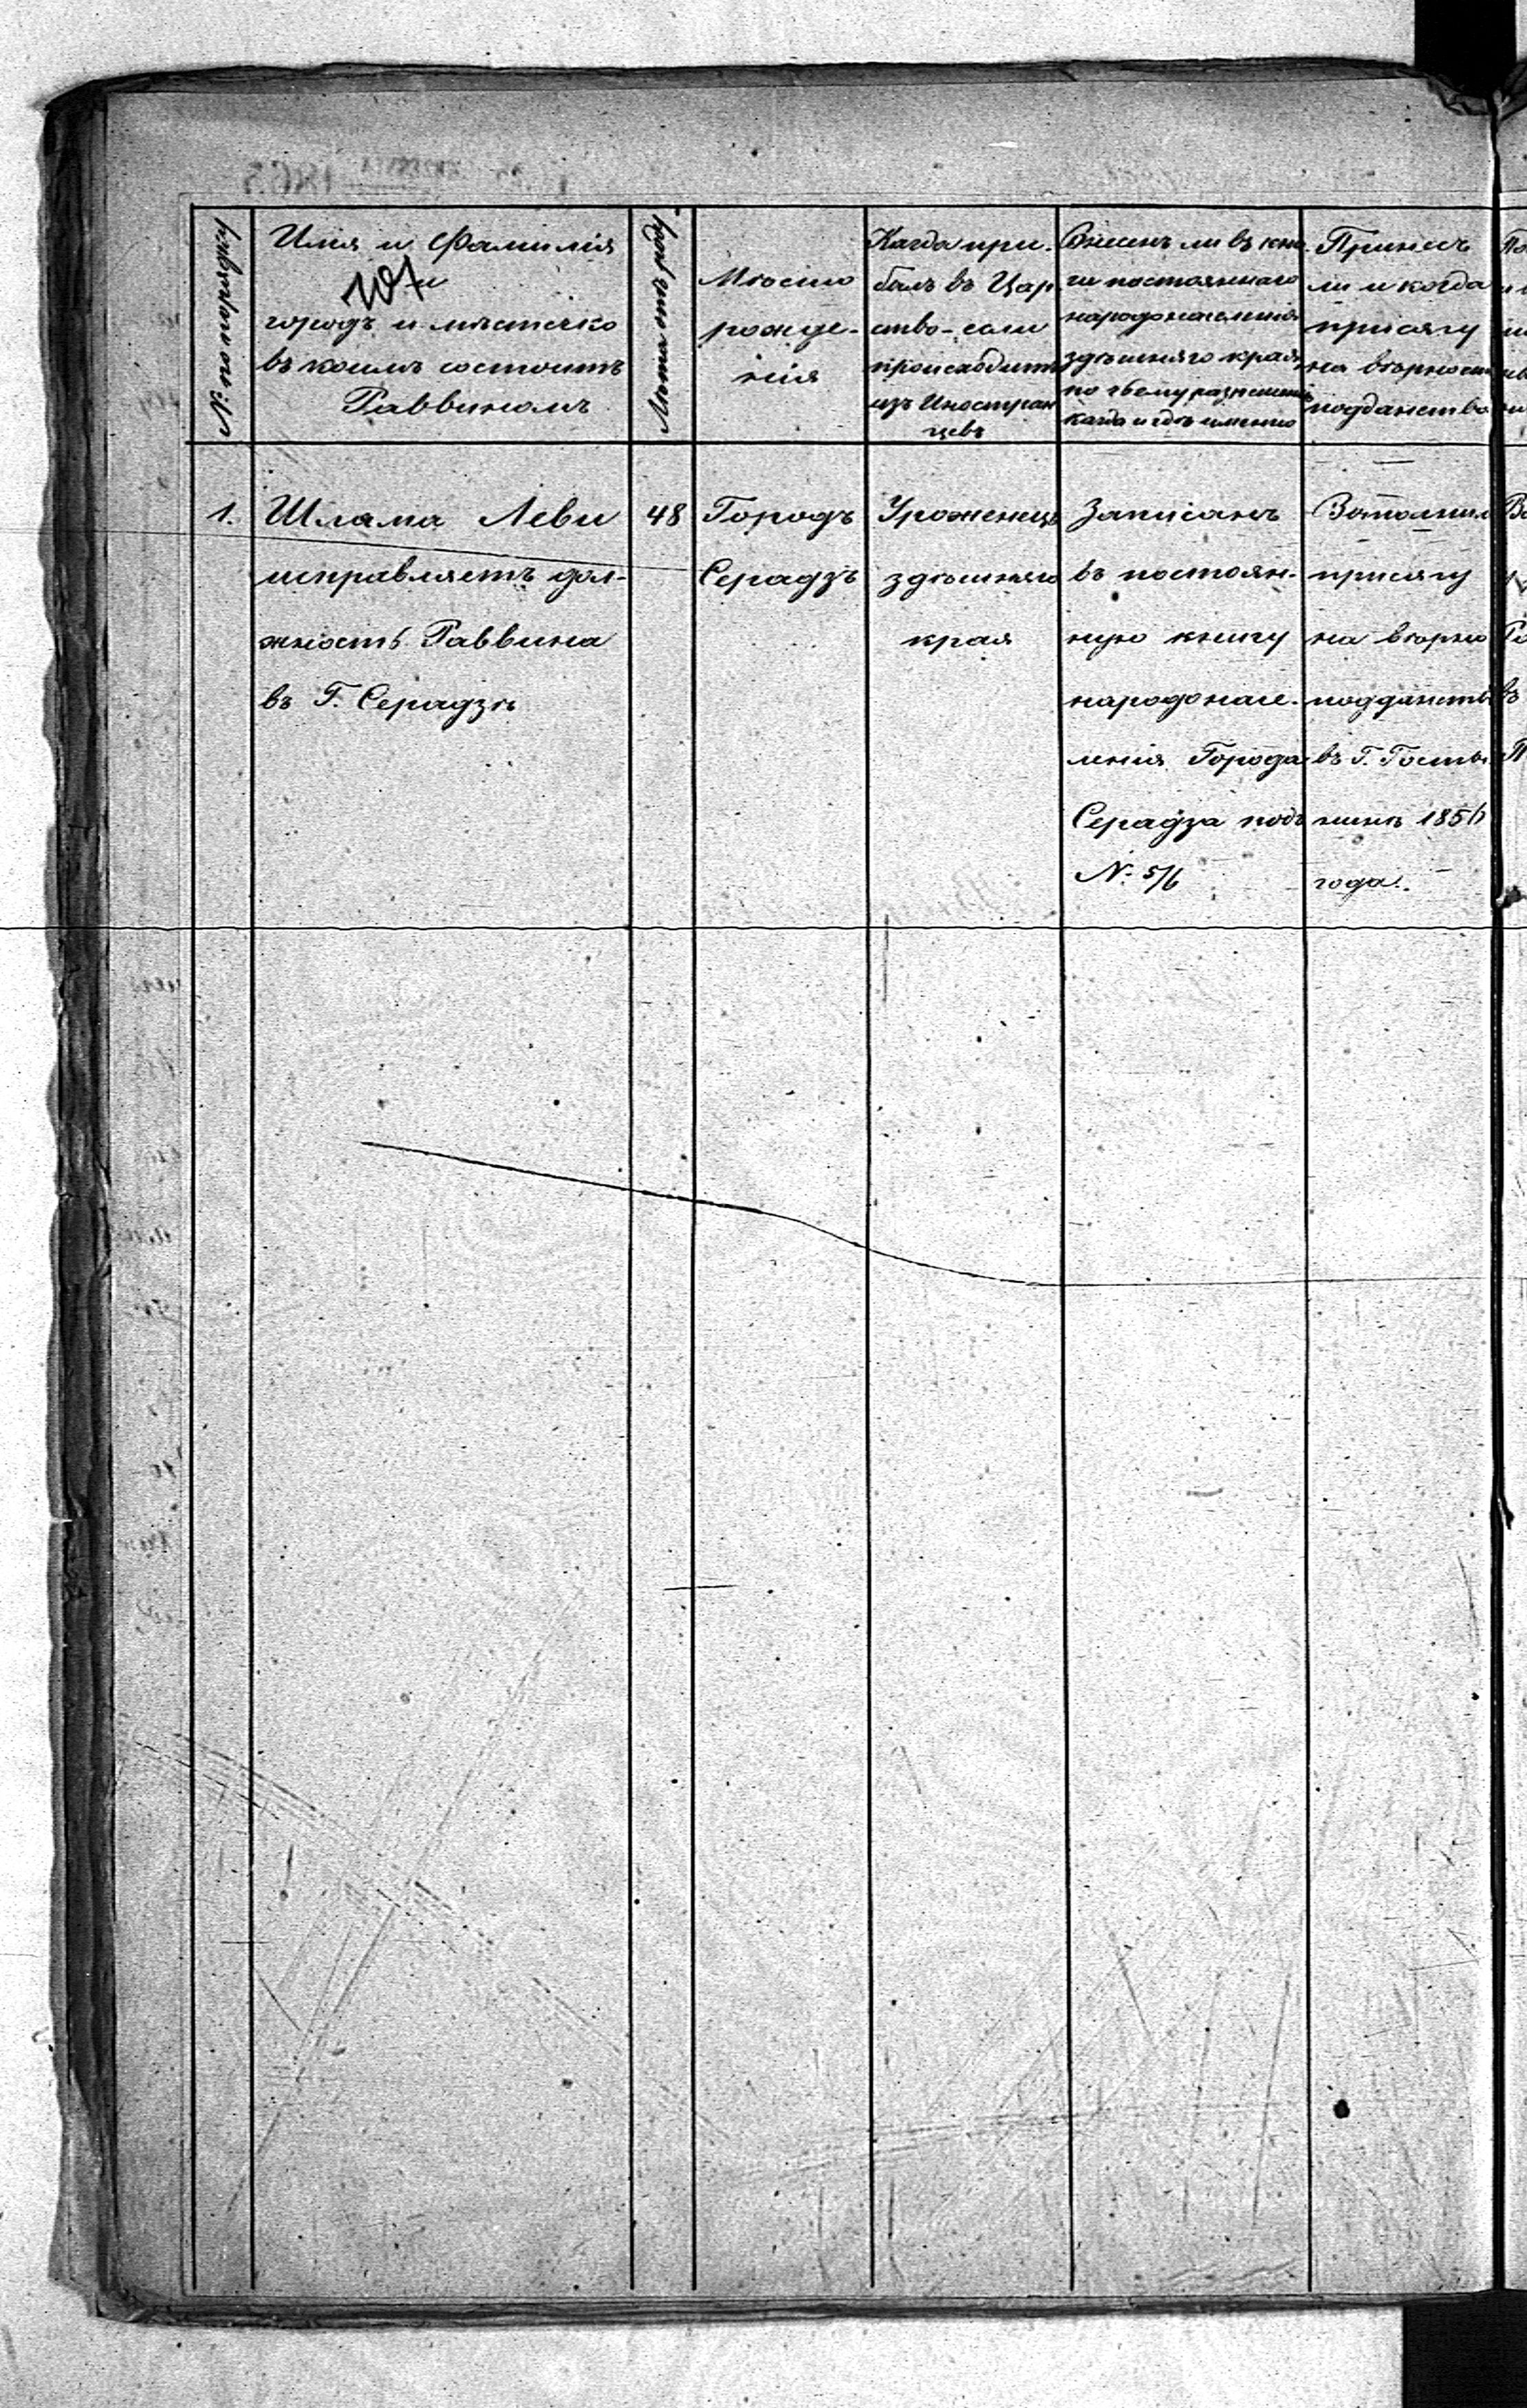 N: по порядку
Имя и Фамилія
и
107
городъ и мѣстечко
въ коемъ состоитъ
Раввиномъ
Лѣта отъ роду
Мѣсто
рожде-
нія
Когда при-
былъ въ Цар
ство - если
происходитъ
изъ Иностран
цевъ
Внесенъ ли въ кни
ги постояннаго
народонаселенія
здѣшняго края
по чьему разрешенію
когда и гдѣ именно
Принесъ
ли и когда
присягу
на вѣрность
подданства
1.
Шлама Леви
исправляетъ дол-
жность Раввина
въ Г. Серадзѣ
48
Городъ
Серадзъ
Уроженецъ
здѣшняго
края
Записанъ
въ постоян-
ную книгу
народонасе-
ленія Города
Серадза подъ
N: 5/6
присягу
на вѣрно
подданство
въ Г. Госты
нинѣ 1856
года.